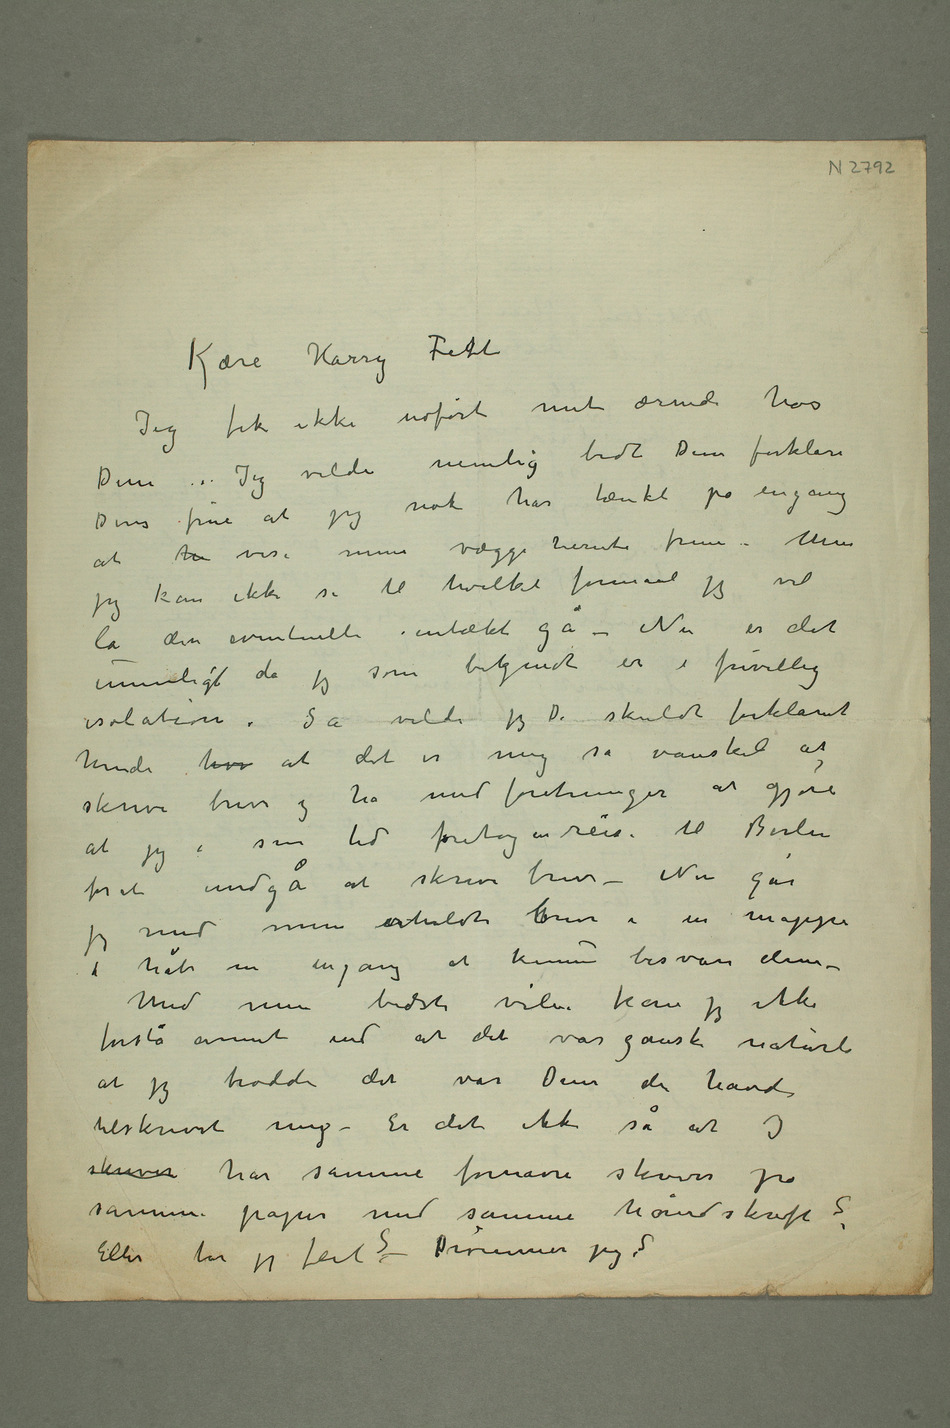 N 2792
Kære Harry Fett
Jeg fik ikke udført mit ærinde hos
Dem .. Jeg vilde nemlig bedt Dem forklare
Deres frue at jeg nok har tænkt på engang
at ha vise mine vægge hernte frem. Men
jeg kan ikke se til hvilket formaal jeg vil
la den eventuelle intækt gå – Nu er det
umuligt da jeg som bekjendt er i frivillig
isolation. Så vilde jeg De skuldt forklaret
hende hvor at det er mig så vanskel at
skrive breve og ha med foretninger at gjøre
at jeg i sin tid foretog en reise til Berlin
forat undgå at skrive breve – Nu går
jeg med mine erholdte breve i en mappe
i håb om engang at kunne besvare dem –
Med min bedste vilje kan jeg ikke
forstå annet end at det var ganske naturli
at jeg trodde det var Dem der havde
tilskrevet mig – Er det ikke så at I
skriver har samme fornavne skriver på
samme papir med samme håndskrift ?
Eller tar jeg feil ? – Drømmer jeg ?